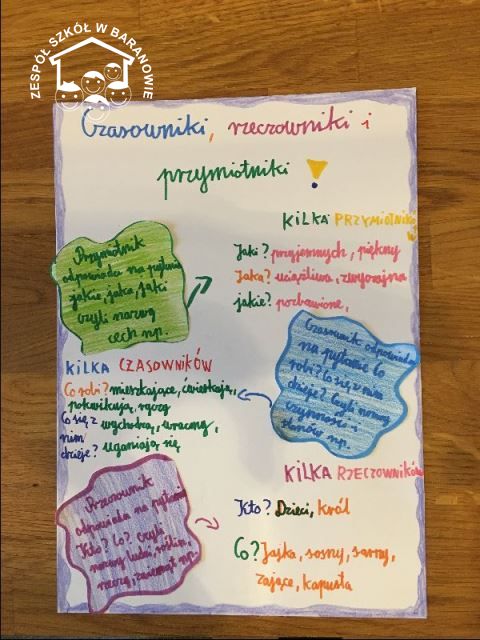 ZESPÓŁ SZKÓŁ W BARANOWIE
Czasowniki, rzeczowniki i
przymiotniki !
KILKA PRZYMIOTNIKÓW
Przymiotnik
odpowiada na pytania
jakie, jaka, jaki
czyli nazwy
cech np.
Jaki? przyjemnych, piękny
Jaka? uciążliwa, zwyczajna
jakie? pozbawione,
Czasownik odpowiada
na pytanie Co
robi? Co się z nim
dzieje? Czyli nazwy
czynności i
stanów np.
KILKA CZASOWNIKÓW
Co robi? mieszkające, ćwierkają,
pokwikują, rączą
Co się z wychodzą, wracamy,
nim
dzieje? uganiają się
KILKA RZECZOWNIKÓW
Rzeczownik
odpowiada na pytania
Kto? Co? czyli
nazwy ludzi, roślin,
rzeczy, zwierząt np.
Kto? Dzieci, król
Co? Jajka, sosny, sarny,
zające, kapusta